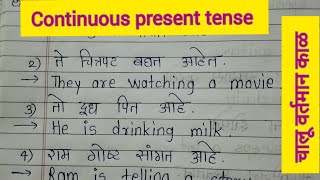 Continuous present tense
2) ते चित्रपट बघत आहेत.
→ They are watching a movie
3) तो दूध पित आहे.
→ He is drinking milk.
4) राम गोष्ट सांगत आहे.
→ Ram is telling a
चालू वर्तमान काळ